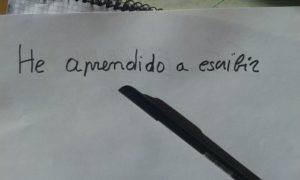 He aprendido a escribir